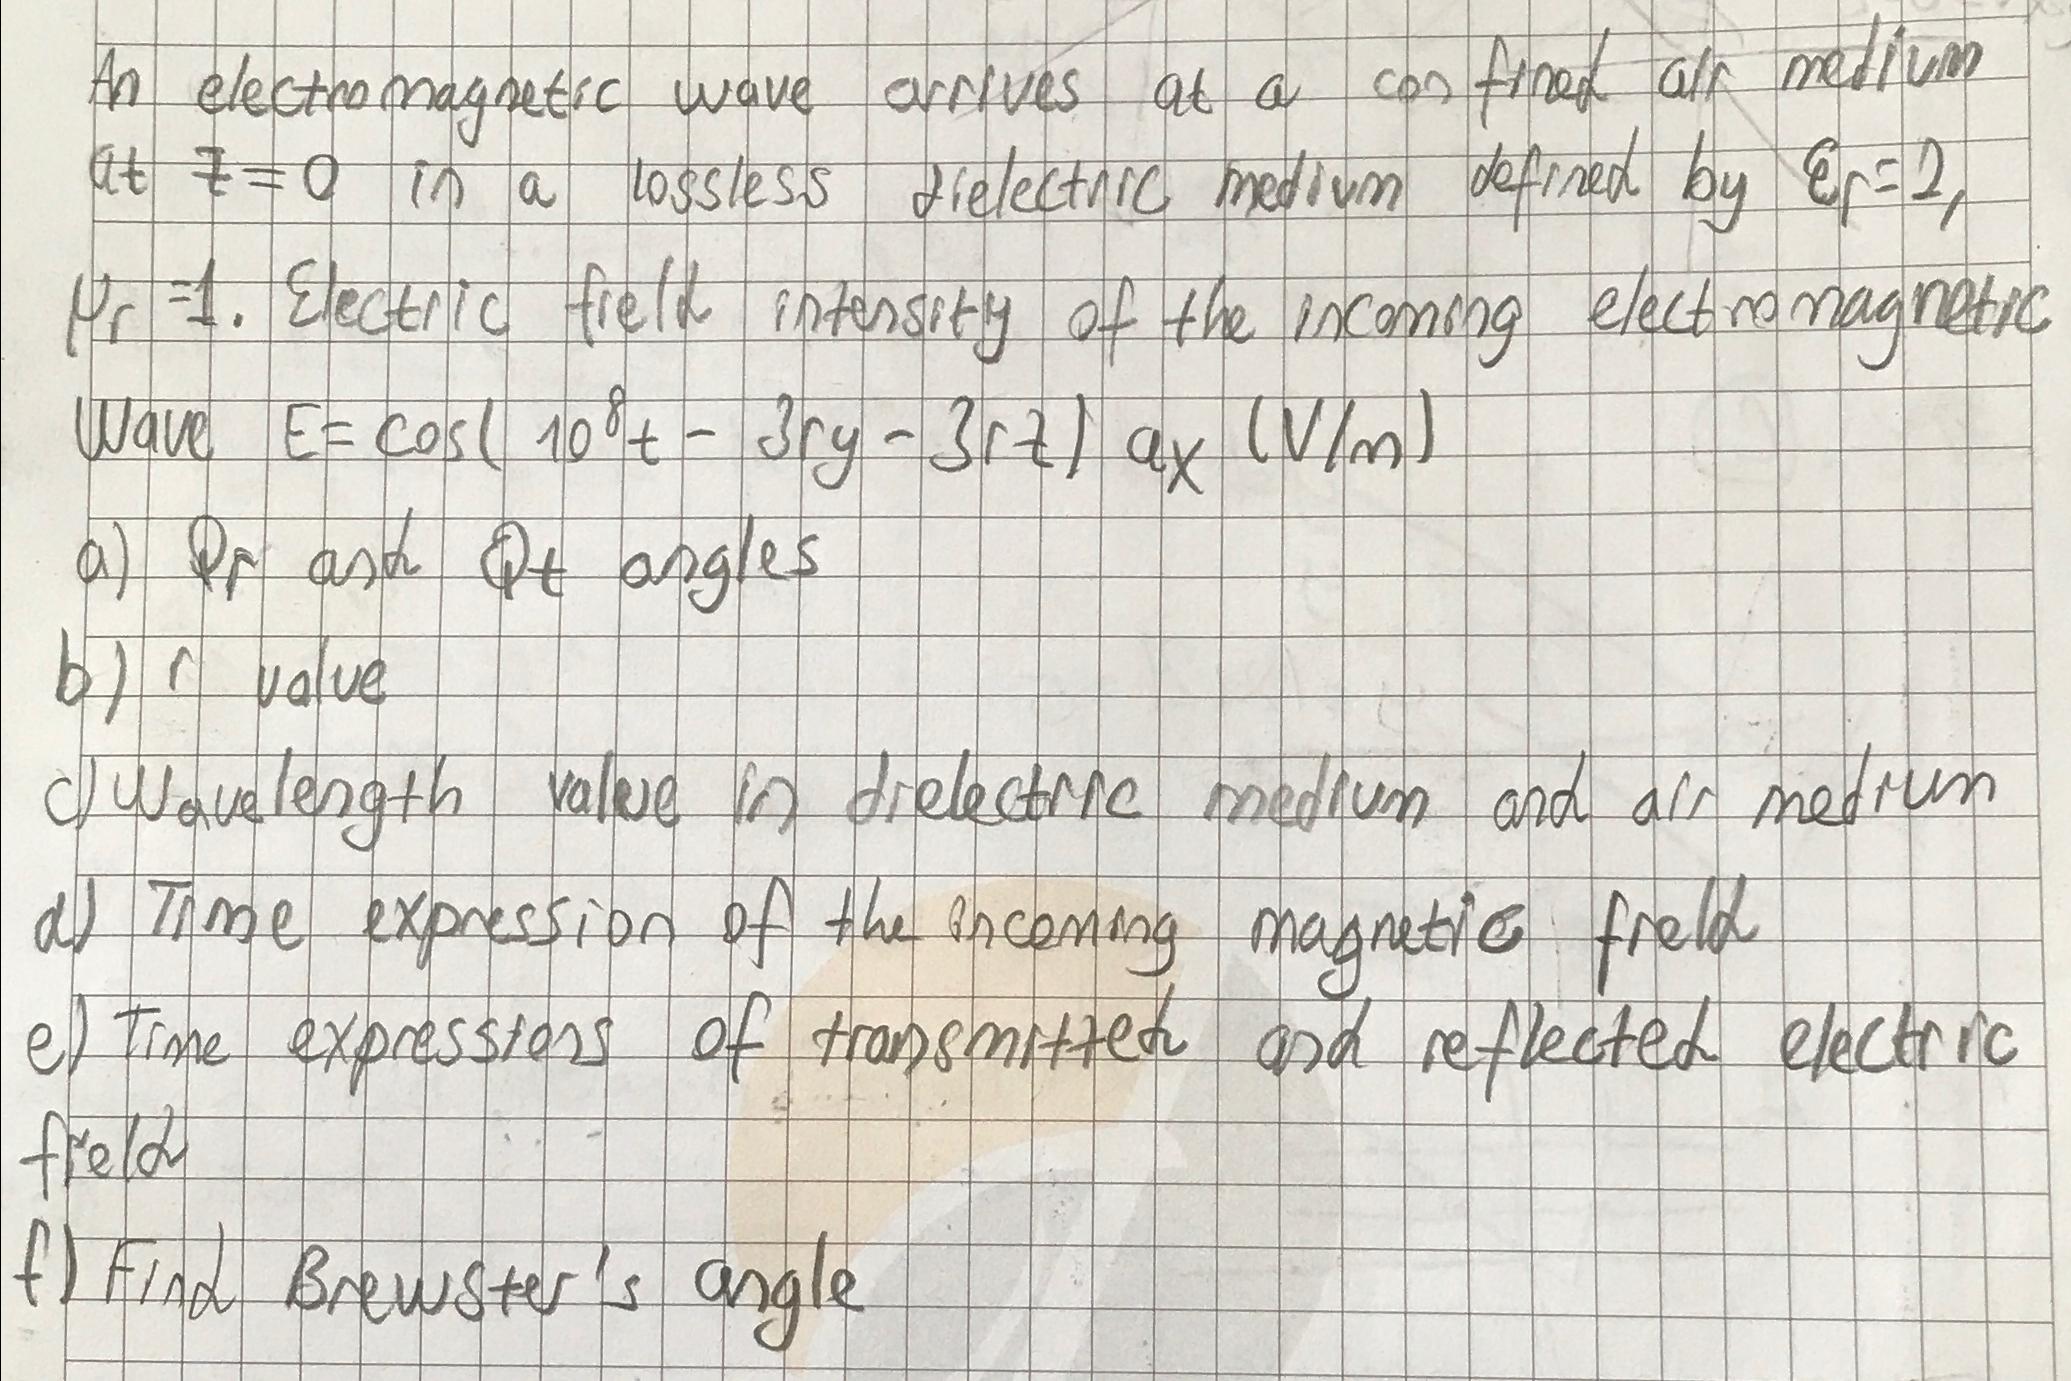 An electromagnetic wave arrives at a confined air medium
at z=0 in a lossless dielectric medium defined by Er=2,
μr=1. Electric field intensity of the incoming electromagnetic
Wave E=cos(10⁸t - 3ry - 3rz) ax (V/m)
a) Qr and Qt angles
b) r value
c) Wavelength value in dielectric medium and air medium
d) Time expression of the incoming magnetic field
e) Time expressions of transmitted and reflected electric
field
f) Find Brewster's angle